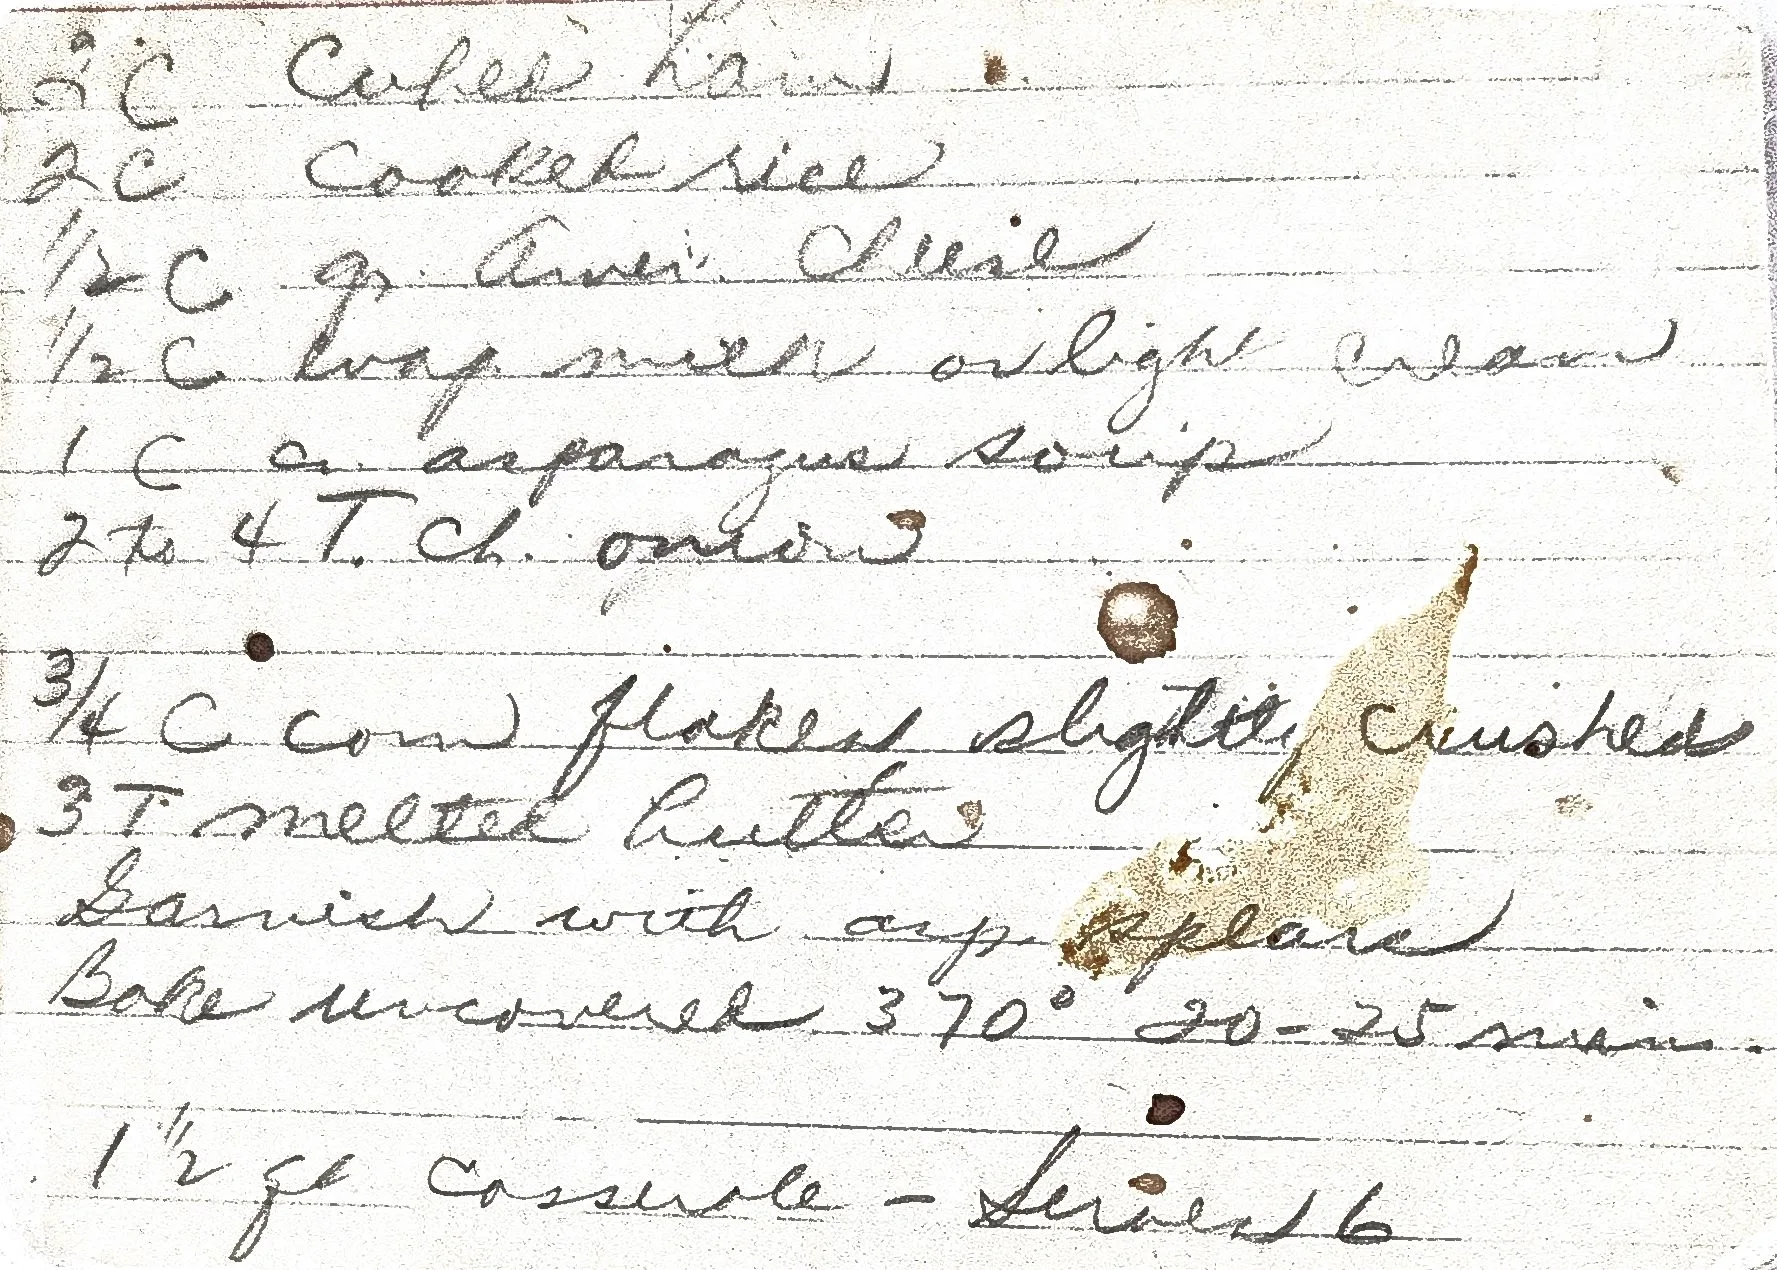 2 C Cubed ham
2 C Cooked rice
1/2 C gr. Amer. Cheese
1/2 C Evap milk or light cream
1 C cr. asparagus soup
2 to 4 T. Ch. onion
3/4 C corn flakes slightly crushed
3 T melted butter
Garnish with asp. spears
Bake uncovered 370° 20-25 min.
1 1/2 qt casserole - Serves 6